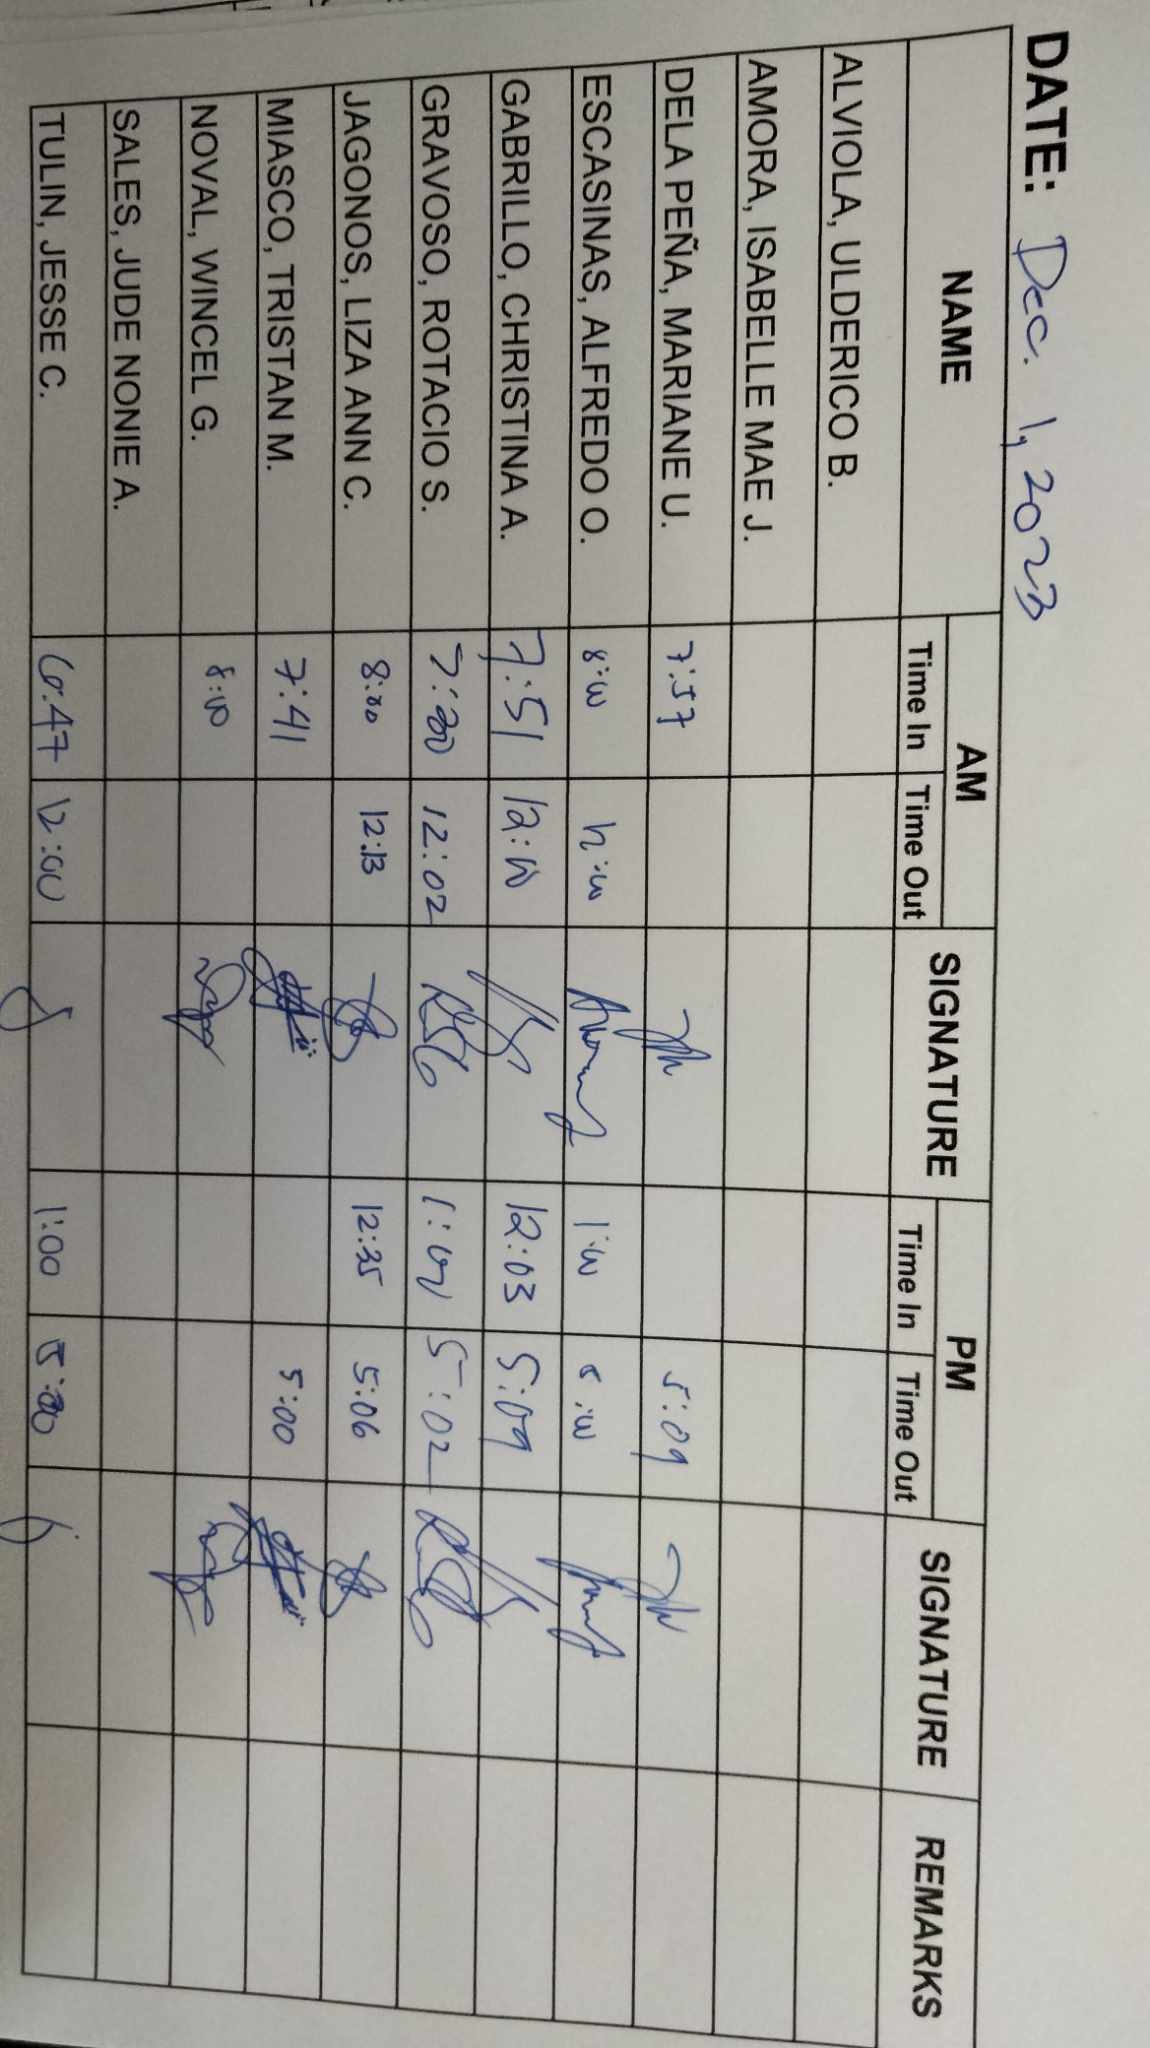 DATE: Dec. 1, 2023
NAME AM SIGNATURE PM SIGNATURE REMARKS
Time In Time Out Time In Time Out
ALVIOLA, ULDERICO B.
AMORA, ISABELLE MAE J.
DELA PEÑA, MARIANE U. 7:57 5:09
ESCASINAS, ALFREDO O. 8:00 12:00 1:00 5:00
GABRILLO, CHRISTINA A. 7:51 12:00 12:03 5:09
GRAVOSO, ROTACIO S. 7:30 12:02 1:00 5:02
JAGONOS, LIZA ANN C. 8:00 12:13 12:35 5:06
MIASCO, TRISTAN M. 7:41 5:00
NOVAL, WINCEL G. 8:00
SALES, JUDE NONIE A.
TULIN, JESSE C. 6:47 12:00 1:00 5:00